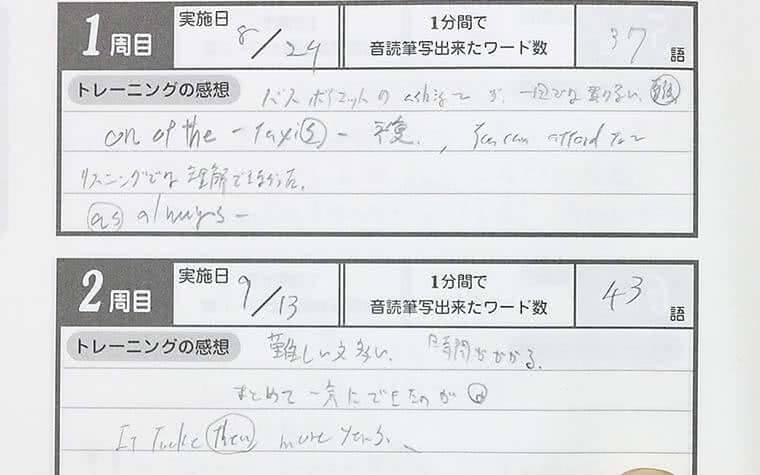 1周目 実施日 8/24 1分間で音読筆写出来たワード数 37 語
トレーニングの感想 バス が、一回では
on of the - taxis - can afford
リスニングでは理解できなかった。
as always -
2周目 実施日 9/13 1分間で音読筆写出来たワード数 43 語
トレーニングの感想 難しい文多い、時間がかかる。
まとめて一気にできたのが
It them more years.